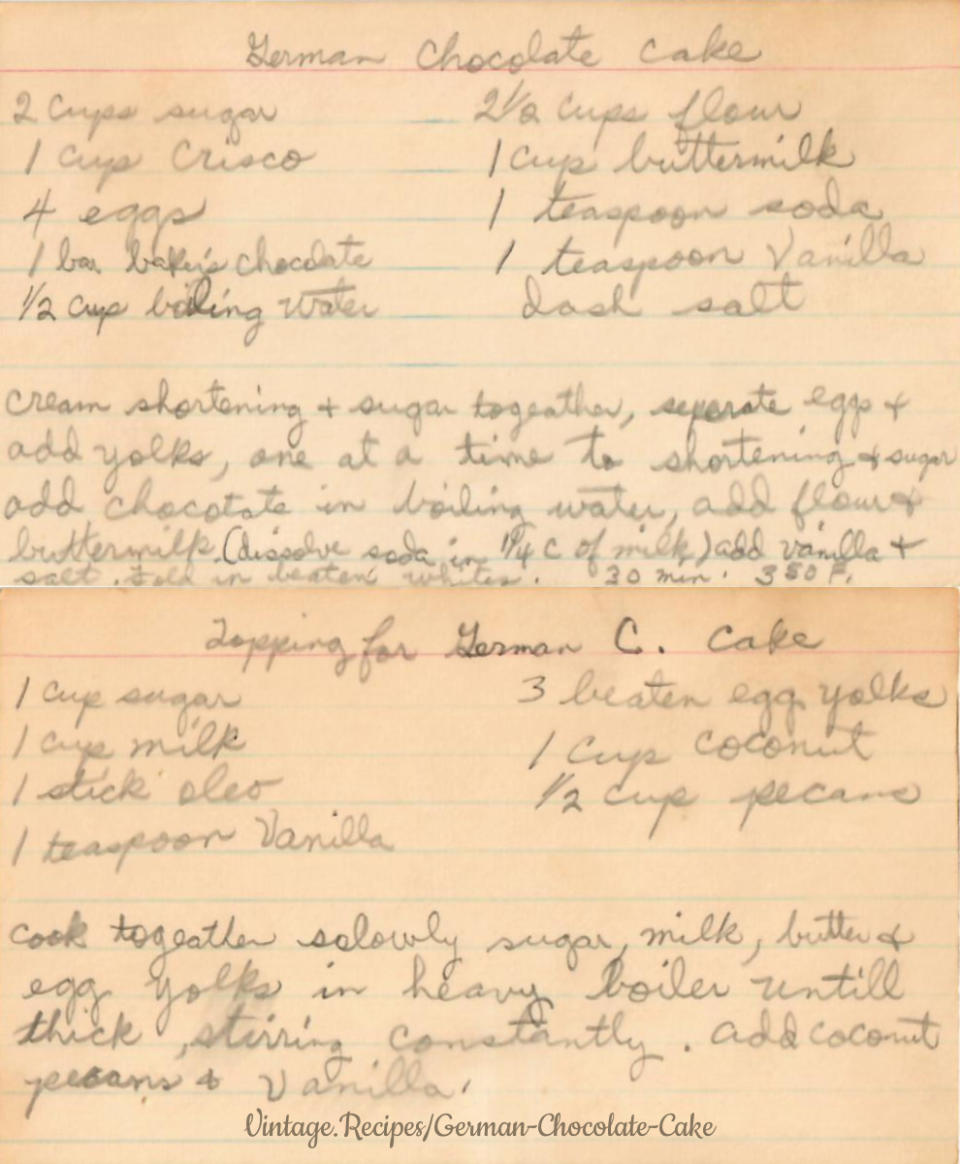 German Chocolate Cake
2 cups sugar 2 1/2 cups flour
1 cup Crisco 1 cup buttermilk
4 eggs 1 teaspoon soda
1 bar baker's chocolate 1 teaspoon Vanilla
1/2 cup boiling water dash salt
cream shortening + sugar togeather, seperate eggs +
add yolks, one at a time to shortening + sugar
add chocotate in boiling water, add flour +
buttermilk (dissolve soda in 1/4 c of milk) add vanilla +
salt. Fold in beaten whites. 30 min. 350 F.
Topping for German C. Cake
1 cup sugar 3 beaten egg yolks
1 cup milk 1 cup coconut
1 stick oleo 1/2 cup pecans
1 teaspoon Vanilla
cook togeather solowly sugar, milk, butter +
egg yolks in heavy boiler untill
thick, stirring constantly. add coconut
pecans + Vanilla.
Vintage.Recipes/German-Chocolate-Cake